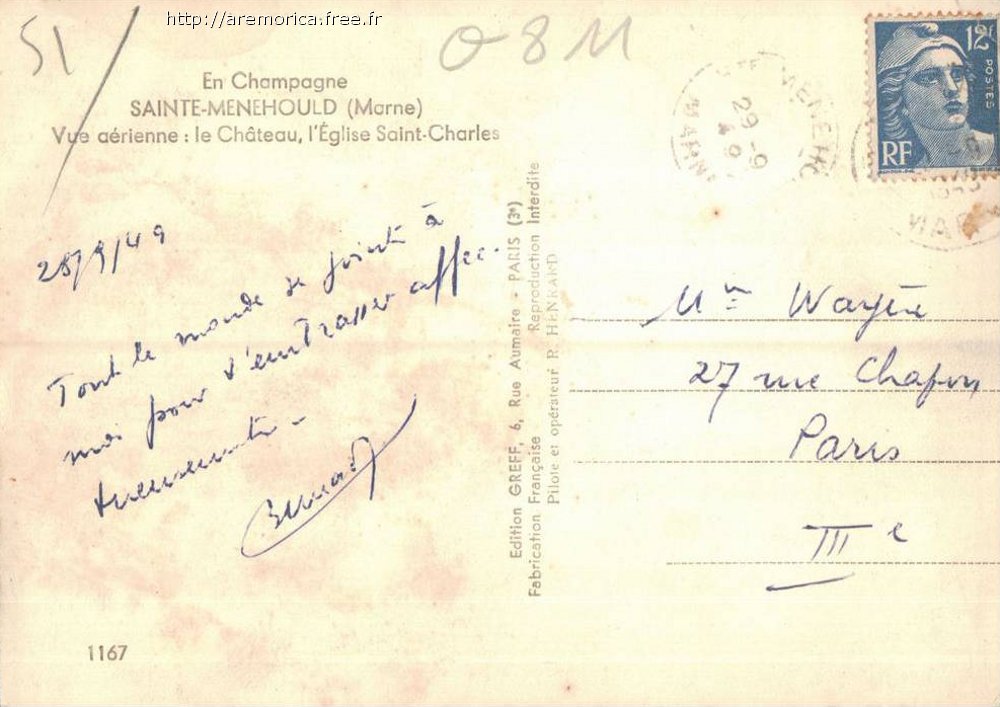 http://aremorica.free.fr
51/
O 8 11
En Champagne
SAINTE-MENEHOULD (Marne)
Vue aérienne : le Château, l'Église Saint-Charles
12F
POSTES
RF
MENEHO
29-9
49
MAR
28/9/49
Tout le monde se joint à
moi pour t'embrasser affec-
tueusement -
Edition GREFF, 6, Rue Aumaire - PARIS (3e)
Fabrication Française Reproduction Interdite
Pilote et opérateur R. HENRARD
27 rue Chapon
Paris
IIIe
1167